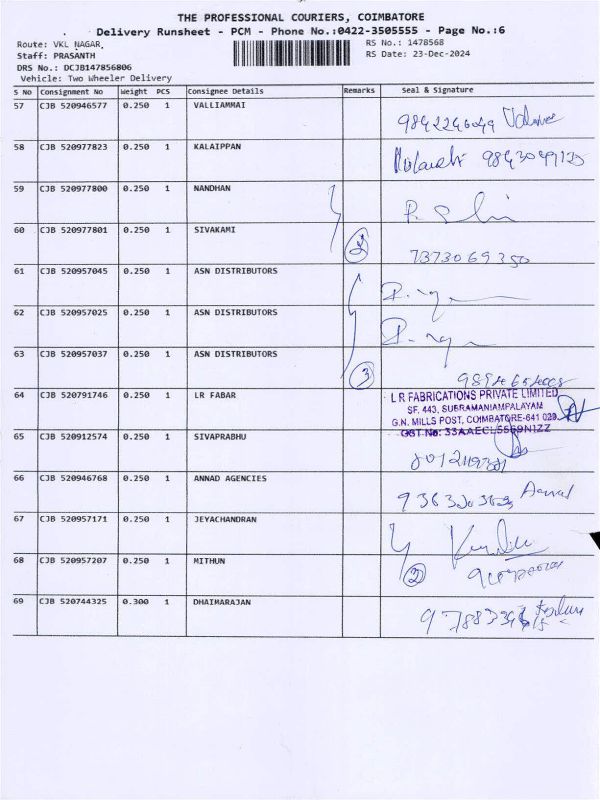 THE PROFESSIONAL COURIERS, COIMBATORE
Delivery Runsheet - PCM - Phone No.:0422-3505555 - Page No.:6
Route: VKL NAGAR,
RS No.: 1478568
Staff: PRASANTH
RS Date: 23-Dec-2024
DRS No.: DCJB147856806
Vehicle: Two Wheeler Delivery
S No Consignment No Weight PCS Consignee Details Remarks Seal & Signature
57 CJB 520946577 0.250 1 VALLIAMMAI
58 CJB 520977823 0.250 1 KALAIPPAN
59 CJB 520977800 0.250 1 NANDHAN
60 CJB 520977801 0.250 1 SIVAKAMI 2
7373069350
61 CJB 520957045 0.250 1 ASN DISTRIBUTORS
62 CJB 520957025 0.250 1 ASN DISTRIBUTORS
63 CJB 520957037 0.250 1 ASN DISTRIBUTORS 3
64 CJB 520791746 0.250 1 LR FABAR
L R FABRICATIONS PRIVATE LIMITED
SF. 443, SUBRAMANIAMPALAYAM
G.N. MILLS POST, COIMBATORE-641 029.
GST No: 33AAECL5569N1ZZ
65 CJB 520912574 0.250 1 SIVAPRABHU
66 CJB 520946768 0.250 1 ANNAD AGENCIES
67 CJB 520957171 0.250 1 JEYACHANDRAN
68 CJB 520957207 0.250 1 MITHUN 2
69 CJB 520744325 0.300 1 DHAIMARAJAN